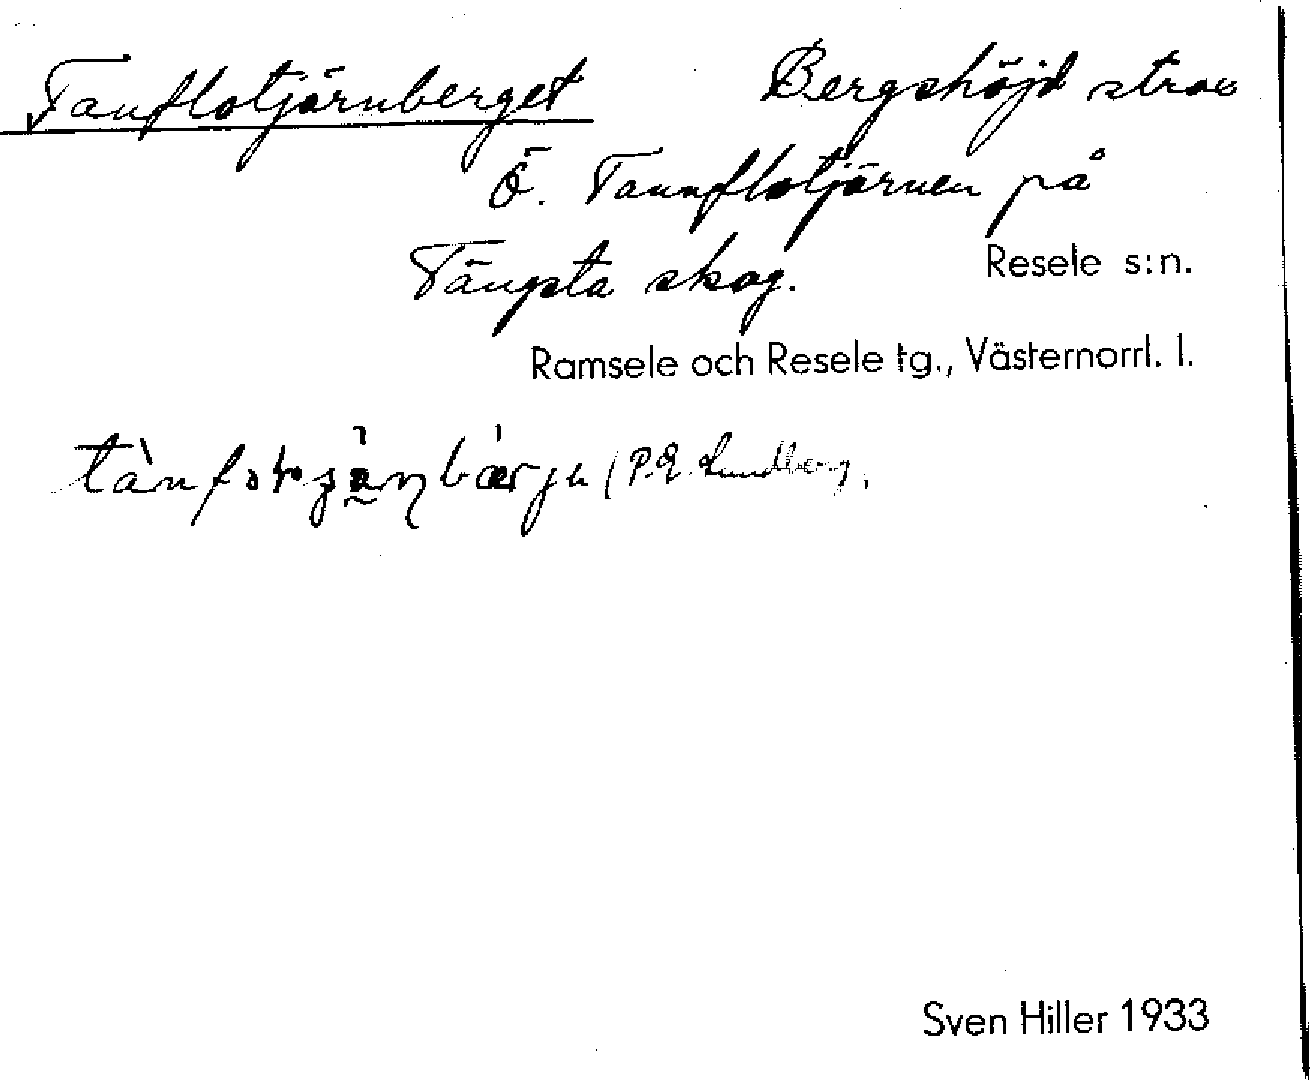 Tanflotjärnberget Bergshöjd strax
Ö. Tannflotjärnen på
Tängsta skog.
Resele s:n.
Ramsele och Resele tg., Västernorrl. l.
(P.E. Lundberg,
Sven Hiller 1933